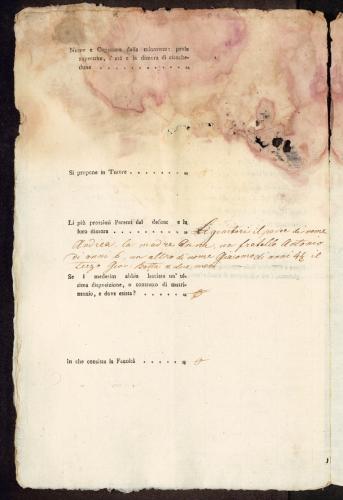 Nome e Cognome della minorenne: prole
superstite, l'età e la dimora di ciasche-
duno . . . . . . . . . . . . „
Si propone in Tutore . . . . . . „
Li più prossimi Parenti del defonto e la
loro dimora . . . . . . . . . . „ Li genitori il padre di nome
Andrea la madre Anna, un fratello Antonio
di anni 6, un altro di nome Giacomo di anni 4½ il
terzo Gio: Batta
Se i medesimi abbia lasciata un' ul-
tima disposizione, o contratto di matri-
monio, e dove esista? . . . . . . „
In che consista la Facoltà . . . . „